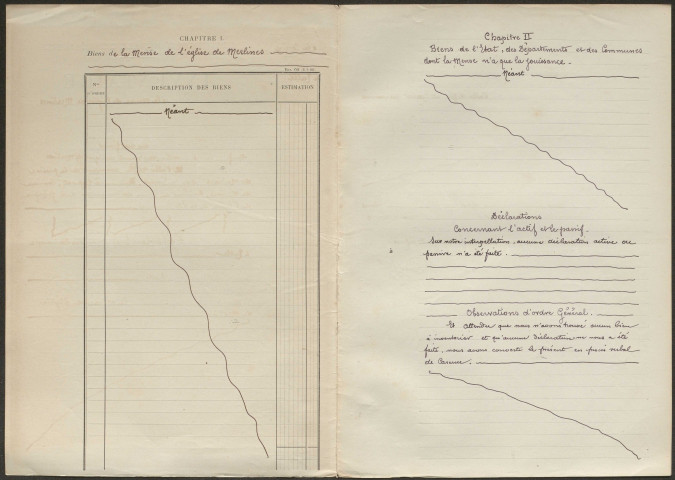 CHAPITRE I.
Biens de la Mense de l'église de Merlines
DESCRIPTION DES BIENS
ESTIMATION
Néant
Chapitre II
Biens de l'Etat, des Départements et des Communes
dont la Mense n'a que la jouissance.
Néant
Déclarations
Concernant l'actif et le passif.
Sur notre interpellation, aucune déclaration active ou
passive n'a été faite.
Observations d'ordre Général.
Et attendu que nous n'avons trouvé aucun bien
à inventorier et qu'aucune déclaration ne nous a été
faite, nous avons converti le présent en procès verbal
de Carence.